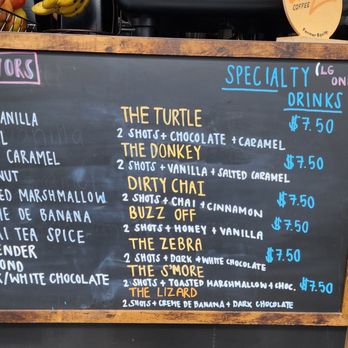 COFFEE
Farmer Bodie
ORS
SPECIALTY (LG
ON
DRINKS
ANILLA
L
CARAMEL
NUT
ED MARSHMALLOW
ME DE BANANA
AI TEA SPICE
ENDER
OND
K/WHITE CHOCOLATE
THE TURTLE $7.50
2 SHOTS + CHOCOLATE + CARAMEL
THE DONKEY $7.50
2 SHOTS + VANILLA + SALTED CARAMEL
DIRTY CHAI $7.50
2 SHOTS + CHAI + CINNAMON
BUZZ OFF $7.50
2 SHOTS + HONEY + VANILLA
THE ZEBRA $7.50
2 SHOTS + DARK + WHITE CHOCOLATE
THE S'MORE $7.50
2 SHOTS + TOASTED MARSHMALLOW + CHOC.
THE LIZARD
2 SHOTS + CREME DE BANANA + DARK CHOCOLATE